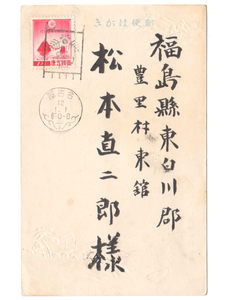 郵便はがき
福島縣東白川郡
豊里村東舘
松本直二郎様